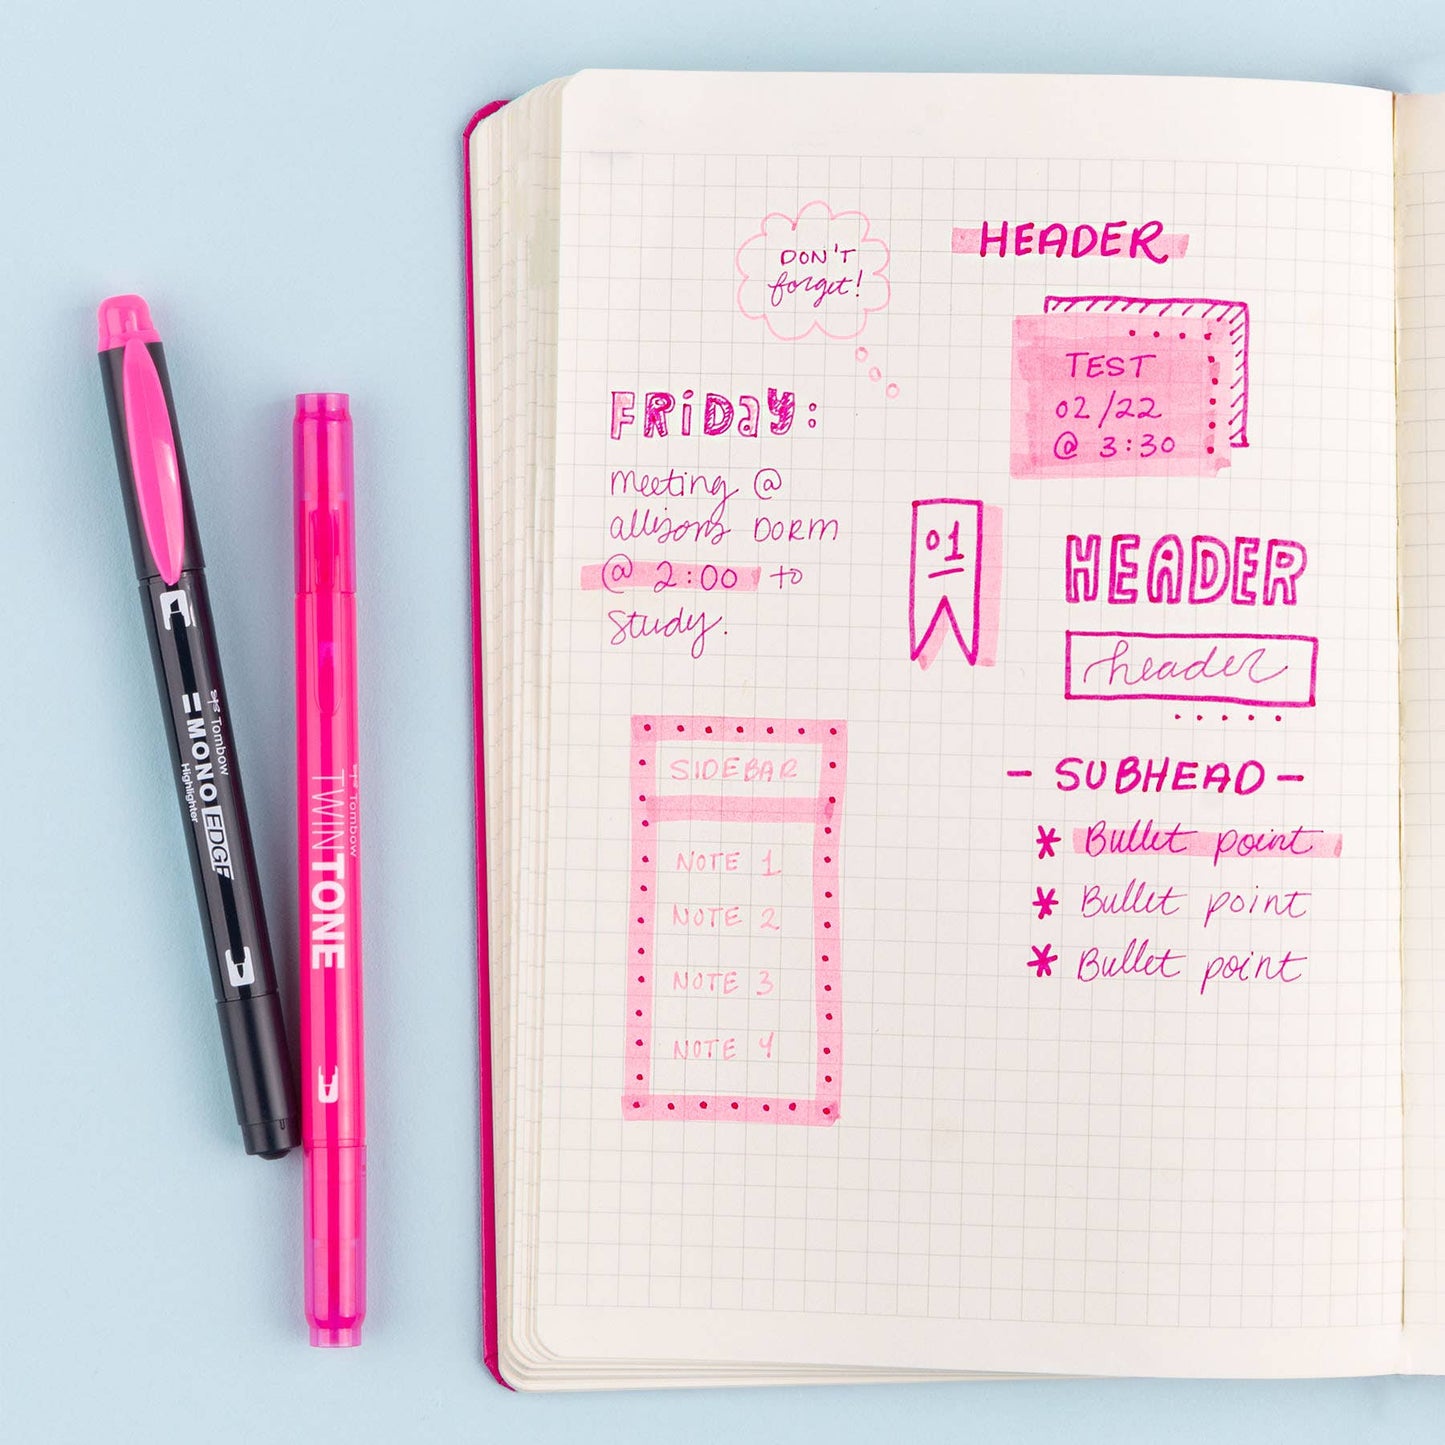 DON'T
forget!
FRiDaY:
meeting @
allisons DORM
@ 2:00 to
Study.
SIDEBAR
NOTE 1
NOTE 2
NOTE 3
NOTE 4
HEADER
TEST
02/22
@ 3:30
01
HEADER
header
- SUBHEAD -
* Bullet point
* Bullet point
* Bullet point
Tombow
MONO EDGE
Highlighter
Tombow
TWINTONE